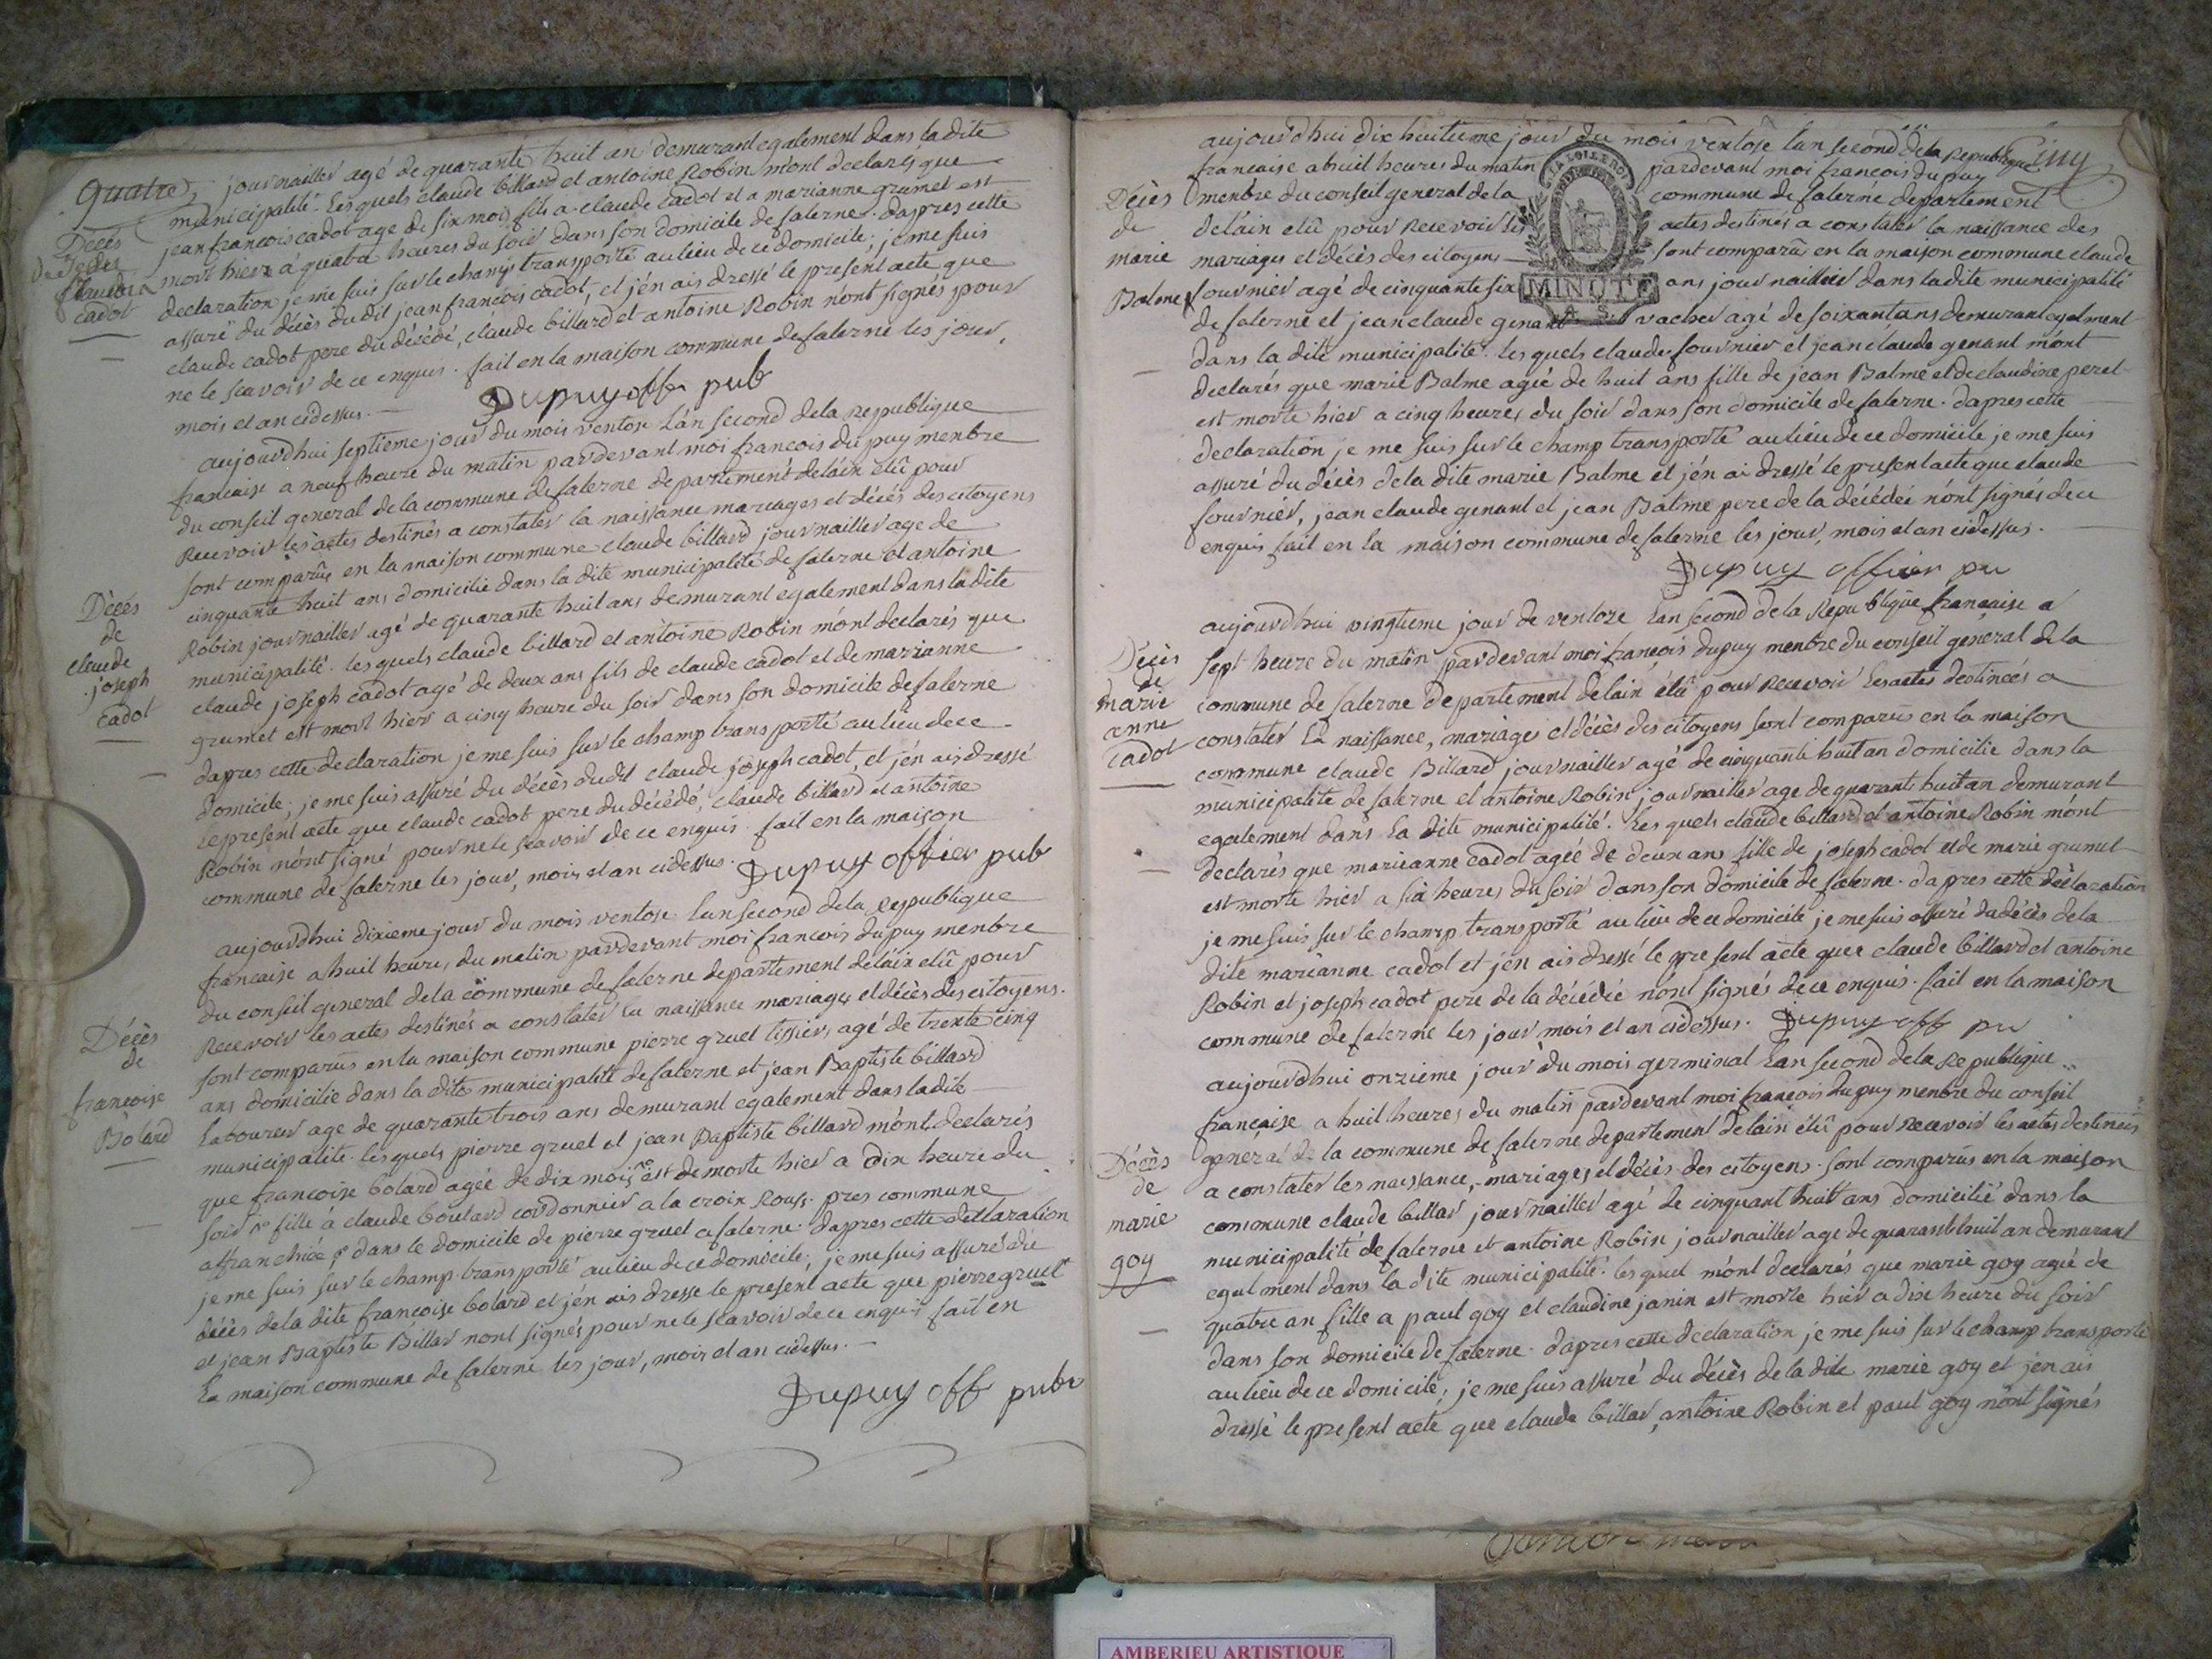 quatre
journaillier agé de quarante huit an demurant egalement dans la dite
municipalité. les quels claude billard et antoine Robin m'ont declarés que
jean francois cadot age de six mois fils a claude cadot et a marianne grumet est
mort hier a quatre heures du soir dans son domicile de salerne. dapres cette
declaration je me suis sur le champ transporté au lieu de ce domicile; je me suis
assuré du décès du dit jean francois cadot, et j'en ais dressé le present acte que
claude cadot pere du décédé, claude billard et antoine Robin n'ont signés pour
ne le scavoir de ce enquis. fait en la maison commune de salerne les jour,
mois et an cidessus.
Dupuy off pub
Décès
de
francois
cadot
aujourdhui septieme jour du mois ventose l'an second de la republique
francaise a neuf heure du matin pardevant moi francois du puy menbre
du conseil general de la commune de salerne departement de l'ain elû pour
Recevoir les actes destinés a constater la naissance mariages et décés des citoyens
sont comparûs en la maison commune claude billard journaillier age de
cinquante huit ans domicilié dans la dite municipalité de salerne et antoine
Robin journaillier agé de quarante huit ans demurant egalement dans la dite
municipalité. les quels claude billard et antoine Robin m'ont declarés que
claude joseph cadot agé de deux ans fils de claude cadot et de marianne
grumet est mort hier a cinq heure du soir dans son domicile de salerne
dapres cette declaration je me suis sur le champ transporté au lieu de ce
domicile; je me suis assuré du décès du dit claude joseph cadot, et j'en ais dressé
le present acte que claude cadot pere du décédé, claude billard et antoine
Robin n'ont signé pour ne le scavoir de ce enquis. fait en la maison
commune de salerne les jour, mois et an cidessus. Dupuy officier pub
Décés
de
claude
joseph
cadot
aujourdhui dixieme jour du mois ventose l'an second de la republique
francaise a huit heure, du matin pardevant moi francois du puy menbre
du conseil general de la commune de salerne departement de l'ain elû pour
Recevoir les actes destinés a constater la naissance mariages et décès des citoyens.
sont comparûs en la maison commune pierre gruel tissier, agé de trente cinq
ans domicilié dans la dite municipalité de salerne et jean Baptiste billard
laboureur age de quarante trois ans demurant egalement dans la dite
municipalité. les quels pierre gruel et jean Baptiste billard m'ont declarés
que francoise bolard agée de dix mois est morte hier a dix heure du
soir fille à claude boulard cordonnier a la croix rouss. pres commune
affranchie dans le domicile de pierre gruel a salerne. dapres cette declaration
je me suis sur le champ transporté au lieu de ce domicile; je me suis assuré du
décès de la dite francoise bolard et j'en ais dressé le present acte que pierre gruel
et jean Baptiste Billar nont signés pour ne le scavoir de ce enquis fait en
la maison commune de salerne les jour, mois et an cidessus.
Dupuy off pub
Décès
de
francoise
Bolard
Cinq
aujourdhui dix huitieme jour du mois ventose l'an second de la republique
francaise a huit heures du matin pardevant moi francois du puy
menbre du conseil general de la commune de salerne departement
de l'ain elû pour Recevoir les actes destinés a constater la naissance des
mariages et décès des citoyens sont comparûs en la maison commune claude
fournier agé de cinquante six ans journaillier dans la dite municipalité
de salerne et jean claude genant vacher agé de soixant ans demurant egalment
dans la dite municipalité. les quels claude fournier et jean claude genant m'ont
declarés que marie Balme agée de huit ans fille de jean Balme et de claudine peret
est morte hier a cinq heures du soir dans son domicile de salerne. dapres cette
declaration je me suis sur le champ transporté au lieu de ce domicile je me suis
assuré du décès de la dite marie Balme et j'en ai dressé le present acte que claude
fournier, jean claude genant et jean Balme pere de la décédée n'ont signés de ce
enquis fait en la maison commune de salerne les jour, mois et an cidessus.
Dupuy officier pu
MINUTE
Décès
de
marie
Balme
aujourdhui vingtieme jour de ventoze l'an second de la Republique francaise a
sept heure du matin pardevant moi françois dupuy menbre du conseil général de la
commune de salerne departement de lain élû pour recevoir les actes destinées a
constater la naissance, mariages et décès des citoyens sont comparûs en la maison
commune claude Billard journaillier agé de cinquante huit an domicilie dans la
municipalité de salerne et antoine Robin journailler age de quarante huit an demurant
egalement dans la dite municipalité. les quels claude billard et antoine Robin m'ont
declarés que marieanne cadot agée de deux ans fille de joseph cadot et de marie grumet
est morte hier a six heures du soir dans son domicile de salerne. dapres cette déclaration
je me suis sur le champ transporté au lieu de ce domicile je me suis assuré du décès de la
dite marianne cadot et j'en ais dressé le present acte que claude billard et antoine
Robin et joseph cadot pere de la décédée nont signés de ce enquis. fait en la maison
commune de salerne les jour mois et an cidessus. Dupuy off pu
Décès
de
marie
anne
cadot
aujourdhui onzieme jour du mois germinal l'an second de la Republique
française a huit heures du matin pardevant moi françois du puy menbre du conseil
général de la commune de salerne departement de lain élû pour recevoir les actes destineés
a constater les naissance, mariages et décès des citoyens. sont comparûs en la maison
commune claude billar journailler agé de cinquant huit ans domicilié dans la
municipalité de salerne et antoine Robin journailler age de quarant huit an demurant
egalment dans la dite municipalité. les quel m'ont declarés que marie goy agée de
quatre an fille a paul goy et claudine janin est morte hier a dix heure du soir
dans son domicile de salerne. dapres cette declaration je me suis sur le champ transporté
au lieu de ce domicile; je me suis assuré du décès de la dite marie goy et jen ais
dressé le present acte que claude billar, antoine Robin et paul goy n'ont signés
Décès
de
marie
goy
AMBERIEU ARTISTIQUE